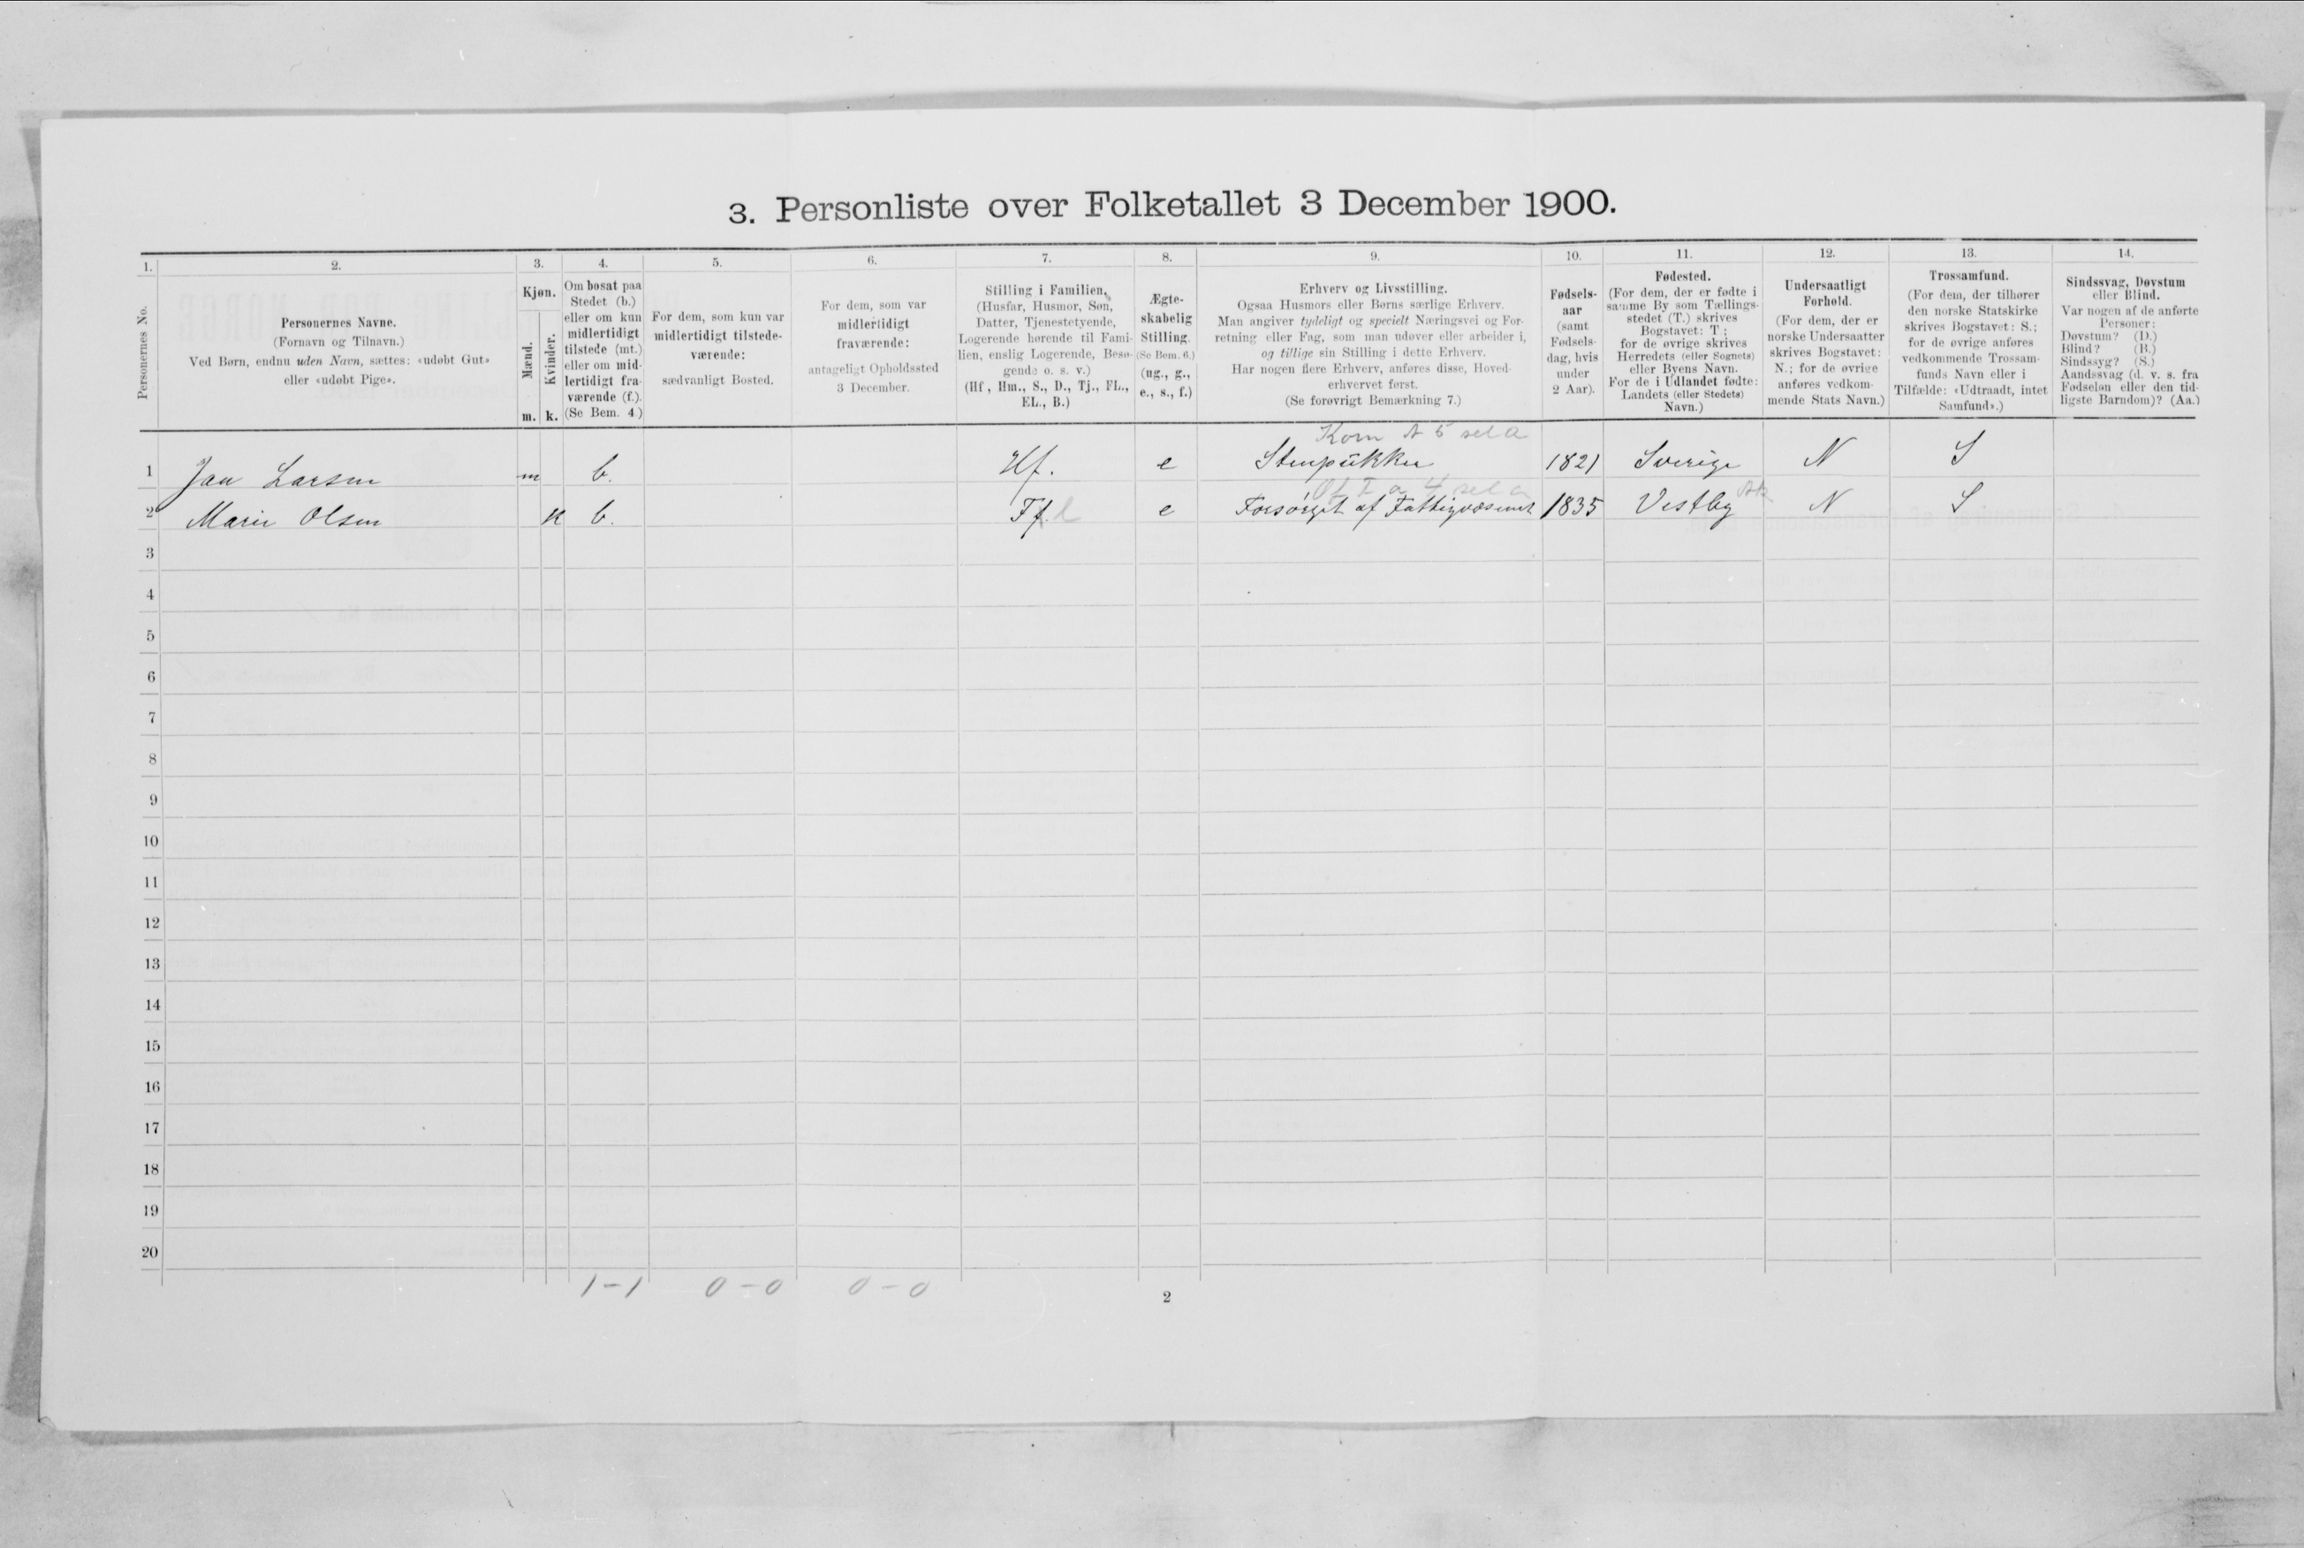 3. Personliste over Folketallet 3 December 1900.
1. 2. 3. 4. 5. 6. 7. 8. 9. 10. 11. 12. 13. 14.
Personernes No.
Personernes Navne.
(Fornavn og Tilnavn.)
Ved Børn, endnu uden Navn, sættes: «udøbt Gut»
eller «udøbt Pige».
Kjøn.
Mænd.
Kvinder.
m. k.
Om bosat paa
Stedet (b.)
eller om kun
midlertidigt
tilstede (mt.)
eller om mid-
lertidigt fra-
værende (f.).
(Se Bem. 4.)
For dem, som kun var
midlertidigt tilstede-
værende:
sædvanligt Bosted.
For dem, som var
midlertidigt
fraværende:
antageligt Opholdssted
3 December.
Stilling i Familien,
(Husfar, Husmor, Søn,
Datter, Tjenestetyende,
Logerende hørende til Fami-
lien, enslig Logerende, Besø-
gende o. s. v.)
(Hf., Hm., S., D., Tj., FL.,
EL., B.)
Ægte-
skabelig
Stilling.
(Se Bem. 6.)
(ug., g.,
e., s., f.)
Erhverv og Livsstilling.
Ogsaa Husmors eller Børns særlige Erhverv.
Man angiver tydeligt og specielt Næringsvei og For-
retning eller Fag, som man udøver eller arbeider i,
og tillige sin Stilling i dette Erhverv.
Har nogen flere Erhverv, anføres disse, Hoved-
erhvervet først.
(Se forøvrigt Bemærkning 7.)
Fødsels-
aar
(samt
Fødsels-
dag, hvis
under
2 Aar).
Fødested.
(For dem, der er fødte i
samme By som Tællings-
stedet (T.) skrives
Bogstavet: T;
for de øvrige skrives
Herredets (eller Sognets)
eller Byens Navn.
For de i Udlandet fødte:
Landets (eller Stedets)
Navn.)
Undersaatligt
Forhold.
(For dem, der er
norske Undersaatter
skrives Bogstavet:
N.; for de øvrige
anføres vedkom-
mende Stats Navn.)
Trossamfund.
(For dem, der tilhører
den norske Statskirke
skrives Bogstavet: S.;
for de øvrige anføres
vedkommende Trossam-
funds Navn eller i
Tilfælde: «Udtraadt, intet
Samfund».)
Sindssvag, Døvstum
eller Blind.
Var nogen af de anførte
Personer:
Døvstum? (D.)
Blind? (B.)
Sindssyg? (S.)
Aandssvag (d. v. s. fra
Fødselen eller den tid-
ligste Barndom)? (Aa.)
1 Jan Larsen m b. Hf. e Stenpukker 1821 Sverige N S
2 Marie Olsen k b. e Forsørget af Fattigvæsenet 1835 Vestby N S
3
4
5
6
7
8
9
10
11
12
13
14
15
16
17
18
19
20
1-1 0-0 0-0
2